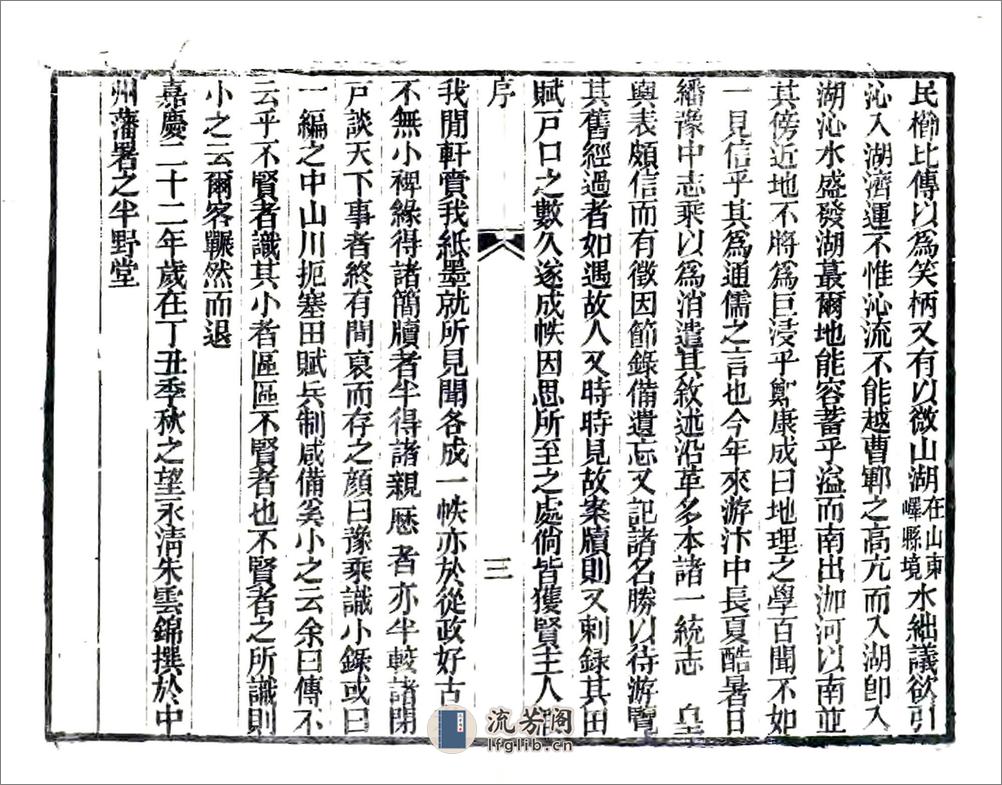 民櫛比傳以爲笑柄又有以微山湖在山東嶧縣境水絀議欲引
沁入湖濟運不惟沁流不能越曹鄆之高亢而入湖卽入
湖沁水盛發湖蕞爾地能容蓄乎溢而南出泇河以南並
其傍近地不將爲巨浸乎鄭康成曰地理之學百聞不如
一見信乎其爲通儒之言也今年來游汴中長夏酷暑日
繙豫中志乘以爲消遣其敘述沿革多本諸一統志 皇
輿表頗信而有徵因節錄備遺忘又記諸名勝以待游覽
其舊經過者如遇故人又時時見故案牘則又剌錄其田
賦戸口之數久遂成帙因思所至之處倘皆獲賢主人
序 三
我閒軒賷我紙墨就所見聞各成一帙亦於從政好古
不無小稗緣得諸簡牘者半得諸親厯者亦半較諸閉
戸談天下事者終有間裒而存之顔曰豫乘識小錄或曰
一編之中山川扼塞田賦兵制咸備奚小之云余曰傳不
云乎不賢者識其小者區區不賢者也不賢者之所識則
小之云爾客囅然而退
嘉慶二十二年歲在丁丑季秋之望永淸朱雲錦撰於中
州藩署之半野堂
流芳閣
lfglib.cn